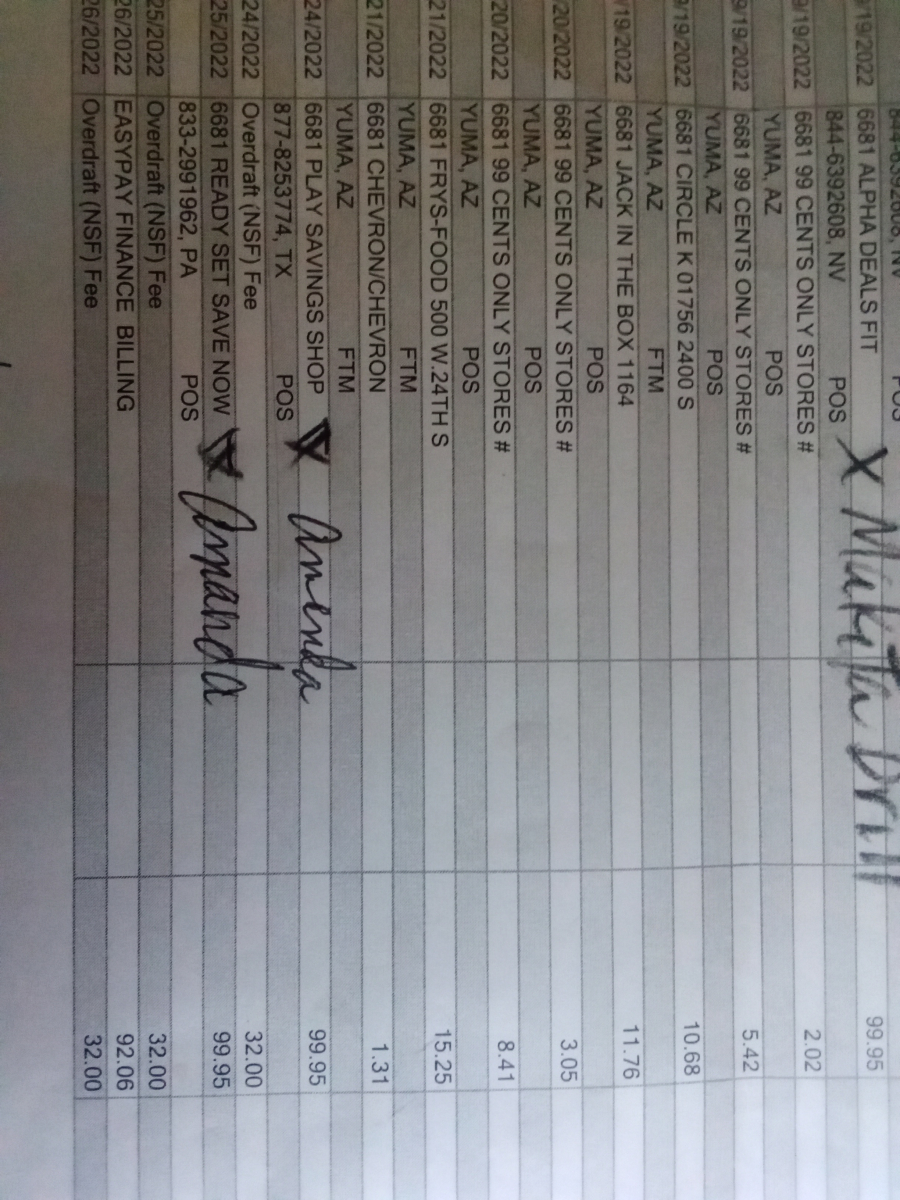 844-6392608, NV POS
/19/2022 6681 ALPHA DEALS FIT X Makita Drill 99.95
844-6392608, NV POS
9/19/2022 6681 99 CENTS ONLY STORES # 2.02
YUMA, AZ POS
9/19/2022 6681 99 CENTS ONLY STORES # 5.42
YUMA, AZ POS
9/19/2022 6681 CIRCLE K 01756 2400 S 10.68
YUMA, AZ FTM
/19/2022 6681 JACK IN THE BOX 1164 11.76
YUMA, AZ POS
/20/2022 6681 99 CENTS ONLY STORES # 3.05
YUMA, AZ POS
20/2022 6681 99 CENTS ONLY STORES # 8.41
YUMA, AZ POS
21/2022 6681 FRYS-FOOD 500 W.24TH S 15.25
YUMA, AZ FTM
21/2022 6681 CHEVRON/CHEVRON 1.31
YUMA, AZ FTM
24/2022 6681 PLAY SAVINGS SHOP Amenda 99.95
877-8253774, TX POS
24/2022 Overdraft (NSF) Fee 32.00
25/2022 6681 READY SET SAVE NOW Amanda 99.95
833-2991962, PA POS
25/2022 Overdraft (NSF) Fee 32.00
26/2022 EASYPAY FINANCE BILLING 92.06
26/2022 Overdraft (NSF) Fee 32.00